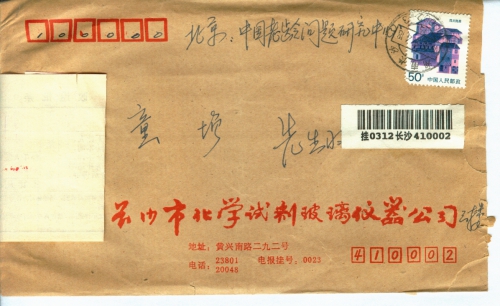 100000
北京：中国老龄问题研究中心
50分 中国人民邮政
挂0312长沙410002
童 先生收
长沙市化学试剂玻璃仪器公司
地址：黄兴南路二九二号
电话：23801 20048 电报挂号：0023
410002